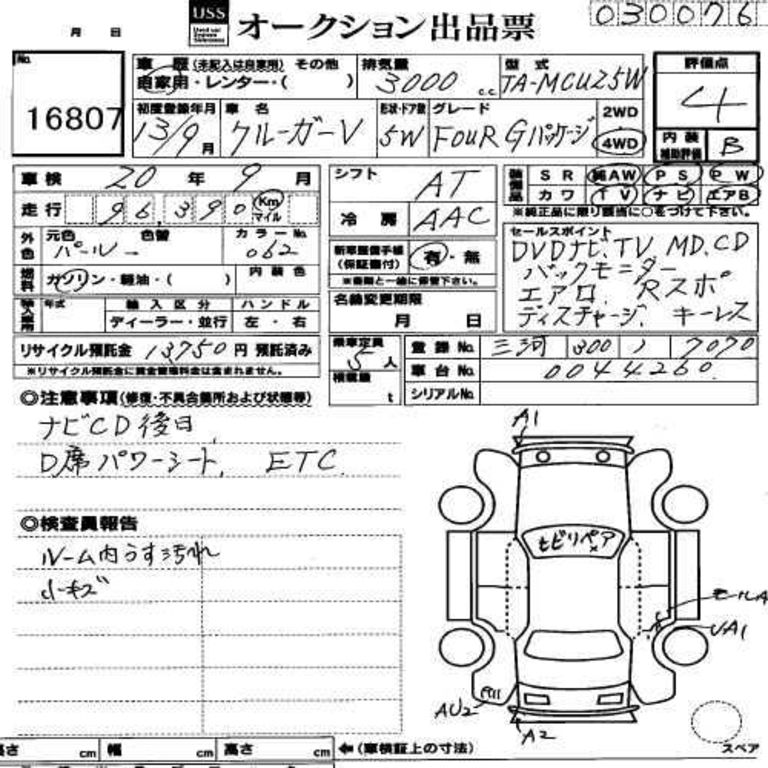 月 日
USS
オークション出品票
030076
No.
16807
車歴 (未記入は自家用) その他
自家用・レンター・( )
排気量
3000 c.c.
型式
TA-MCU25W
評価点
4
初度登録年月
13/9月
車名
クルーガーV
形状・ドア数
5W
グレード
FOUR Gパッケージ
2WD
4WD
内装
補助評価
B
車検 20年 9月
シフト
AT
装備品
SR 純AW PS PW
カワ TV ナビ エアB
※純正品に限り該当に○をつけて下さい。
走行 96,390 Km マイル
冷房
AAC
外色
元色 色替
パール
カラーNo.
062
新車整備手帳
(保証書付)
有・無
※書類と一緒に保管下さい。
セールスポイント
DVDナビ、TV、MD、CD
バックモニター
エアロ、Rスポ
ディスチャージ、キーレス
燃料
ガソリン・軽油・( )
内装色
名義変更期限
月 日
年式
輸入区分
ハンドル
ディーラー・並行
左・右
リサイクル預託金 13750円 預託済み
※リサイクル預託金に資金管理料金は含まれません。
乗車定員
5人
積載量
t
登録No. 三河 300 7070
車台No. 0044260
シリアルNo.
◎注意事項(修復・不具合箇所および状態等)
ナビCD後日
D席パワーシート、ETC
◎検査員報告
ルーム内うす汚れ
小キズ
A1
ヒビリペア
×
UA1
AU2
A2
スペア
高さ cm 幅 cm 高さ cm ←(車検証上の寸法)